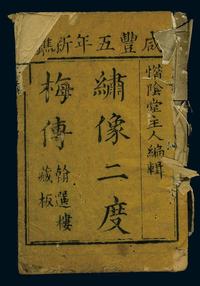 咸豐五年新鐫
惜陰堂主人編輯
繡像二度
梅傳
翰選樓
藏板